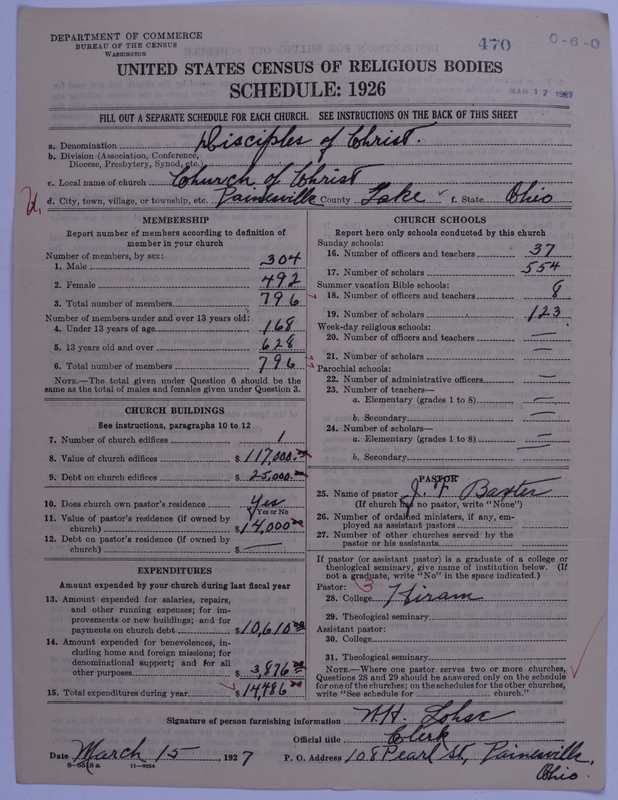 DEPARTMENT OF COMMERCE
BUREAU OF THE CENSUS
WASHINGTON
470
0-6-0
MAR 17 1927
UNITED STATES CENSUS OF RELIGIOUS BODIES
SCHEDULE: 1926
FILL OUT A SEPARATE SCHEDULE FOR EACH CHURCH. SEE INSTRUCTIONS ON THE BACK OF THIS SHEET
a. Denomination Disciples of Christ.
b. Division (Association, Conference, Diocese, Presbytery, Synod, etc.)
c. Local name of church Church of Christ
d. City, town, village, or township, etc. Painesville County Lake f. State Ohio
MEMBERSHIP
Report number of members according to definition of
member in your church
Number of members, by sex:
1. Male 304
2. Female 492
3. Total number of members 796
Number of members under and over 13 years old:
4. Under 13 years of age 168
5. 13 years old and over 628
6. Total number of members 796
NOTE.—The total given under Question 6 should be
same as the total of males and females given under Question 3.
CHURCH BUILDINGS
See instructions, paragraphs 10 to 12
7. Number of church edifices 1
8. Value of church edifices $ 117,000.00
9. Debt on church edifices $ 25,000.00
10. Does church own pastor's residence Yes
Yes or No
11. Value of pastor's residence (if owned by
church) $ 14,000.00
12. Debt on pastor's residence (if owned by
church) $ —
EXPENDITURES
Amount expended by your church during last fiscal year
13. Amount expended for salaries, repairs,
and other running expenses; for im-
provements or new buildings; and for
payments on church debt $ 10,610.00
14. Amount expended for benevolences, in-
cluding home and foreign missions; for
denominational support; and for all
other purposes $ 3,876.00
15. Total expenditures during year $ 14,486.00
CHURCH SCHOOLS
Report here only schools conducted by this church
Sunday schools:
16. Number of officers and teachers 37
17. Number of scholars 554
Summer vacation Bible schools:
18. Number of officers and teachers 8
19. Number of scholars 123
Week-day religious schools:
20. Number of officers and teachers —
21. Number of scholars —
Parochial schools:
22. Number of administrative officers —
23. Number of teachers—
a. Elementary (grades 1 to 8) —
b. Secondary —
24. Number of scholars—
a. Elementary (grades 1 to 8) —
b. Secondary —
PASTOR
25. Name of pastor J. F. Baxter
(If church has no pastor, write "None")
26. Number of ordained ministers, if any, em-
ployed as assistant pastors
27. Number of other churches served by the
pastor or his assistants
If pastor (or assistant pastor) is a graduate of a college or
theological seminary, give name of institution below. (If
not a graduate, write "No" in the space indicated.)
Pastor: 3
28. College Hiram
29. Theological seminary
Assistant pastor:
30. College
31. Theological seminary
NOTE.—Where one pastor serves two or more churches,
Questions 28 and 29 should be answered only on the schedule
for one of the churches; on the schedules for the other churches,
write "See schedule for church."
Signature of person furnishing information N. H. Lohse
Official title Clerk
Date March 15, 1927 P. O. Address 108 Pearl St, Painesville,
Ohio.
11—9054